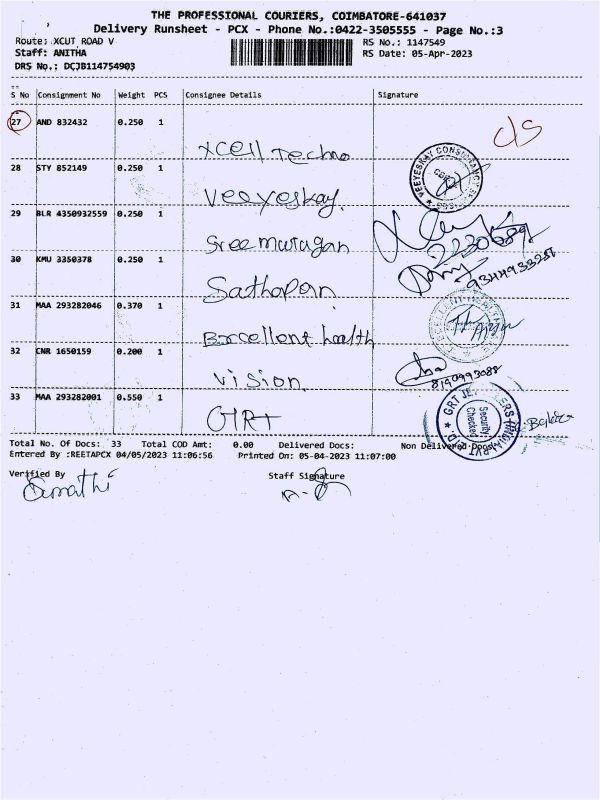 THE PROFESSIONAL COURIERS, COIMBATORE-641037
Delivery Runsheet - PCX - Phone No.:0422-3505555 - Page No.:3
Route: XCUT ROAD V
RS No.: 1147549
Staff: ANITHA
RS Date: 05-Apr-2023
DRS No.: DCJB114754903
S No Consignment No Weight PCS Consignee Details Signature
27 AND 832432 0.250 1
Xcell Techno
28 STY 852149 0.250 1
Veeyeskay.
29 BLR 4350932559 0.250 1
Sree murugan
30 KMU 3350378 0.250 1
Sathapan
31 MAA 293282046 0.370 1
Excellent health
32 CNR 1650159 0.200 1
vision
8190993088
33 MAA 293282001 0.550 1
GRT
Security
Checked
Total No. Of Docs: 33 Total COD Amt: 0.00 Delivered Docs: Non Delivered Docs:
Entered By :REETAPCX 04/05/2023 11:06:56 Printed On: 05-04-2023 11:07:00
Verified By Staff Signature
Sumathi